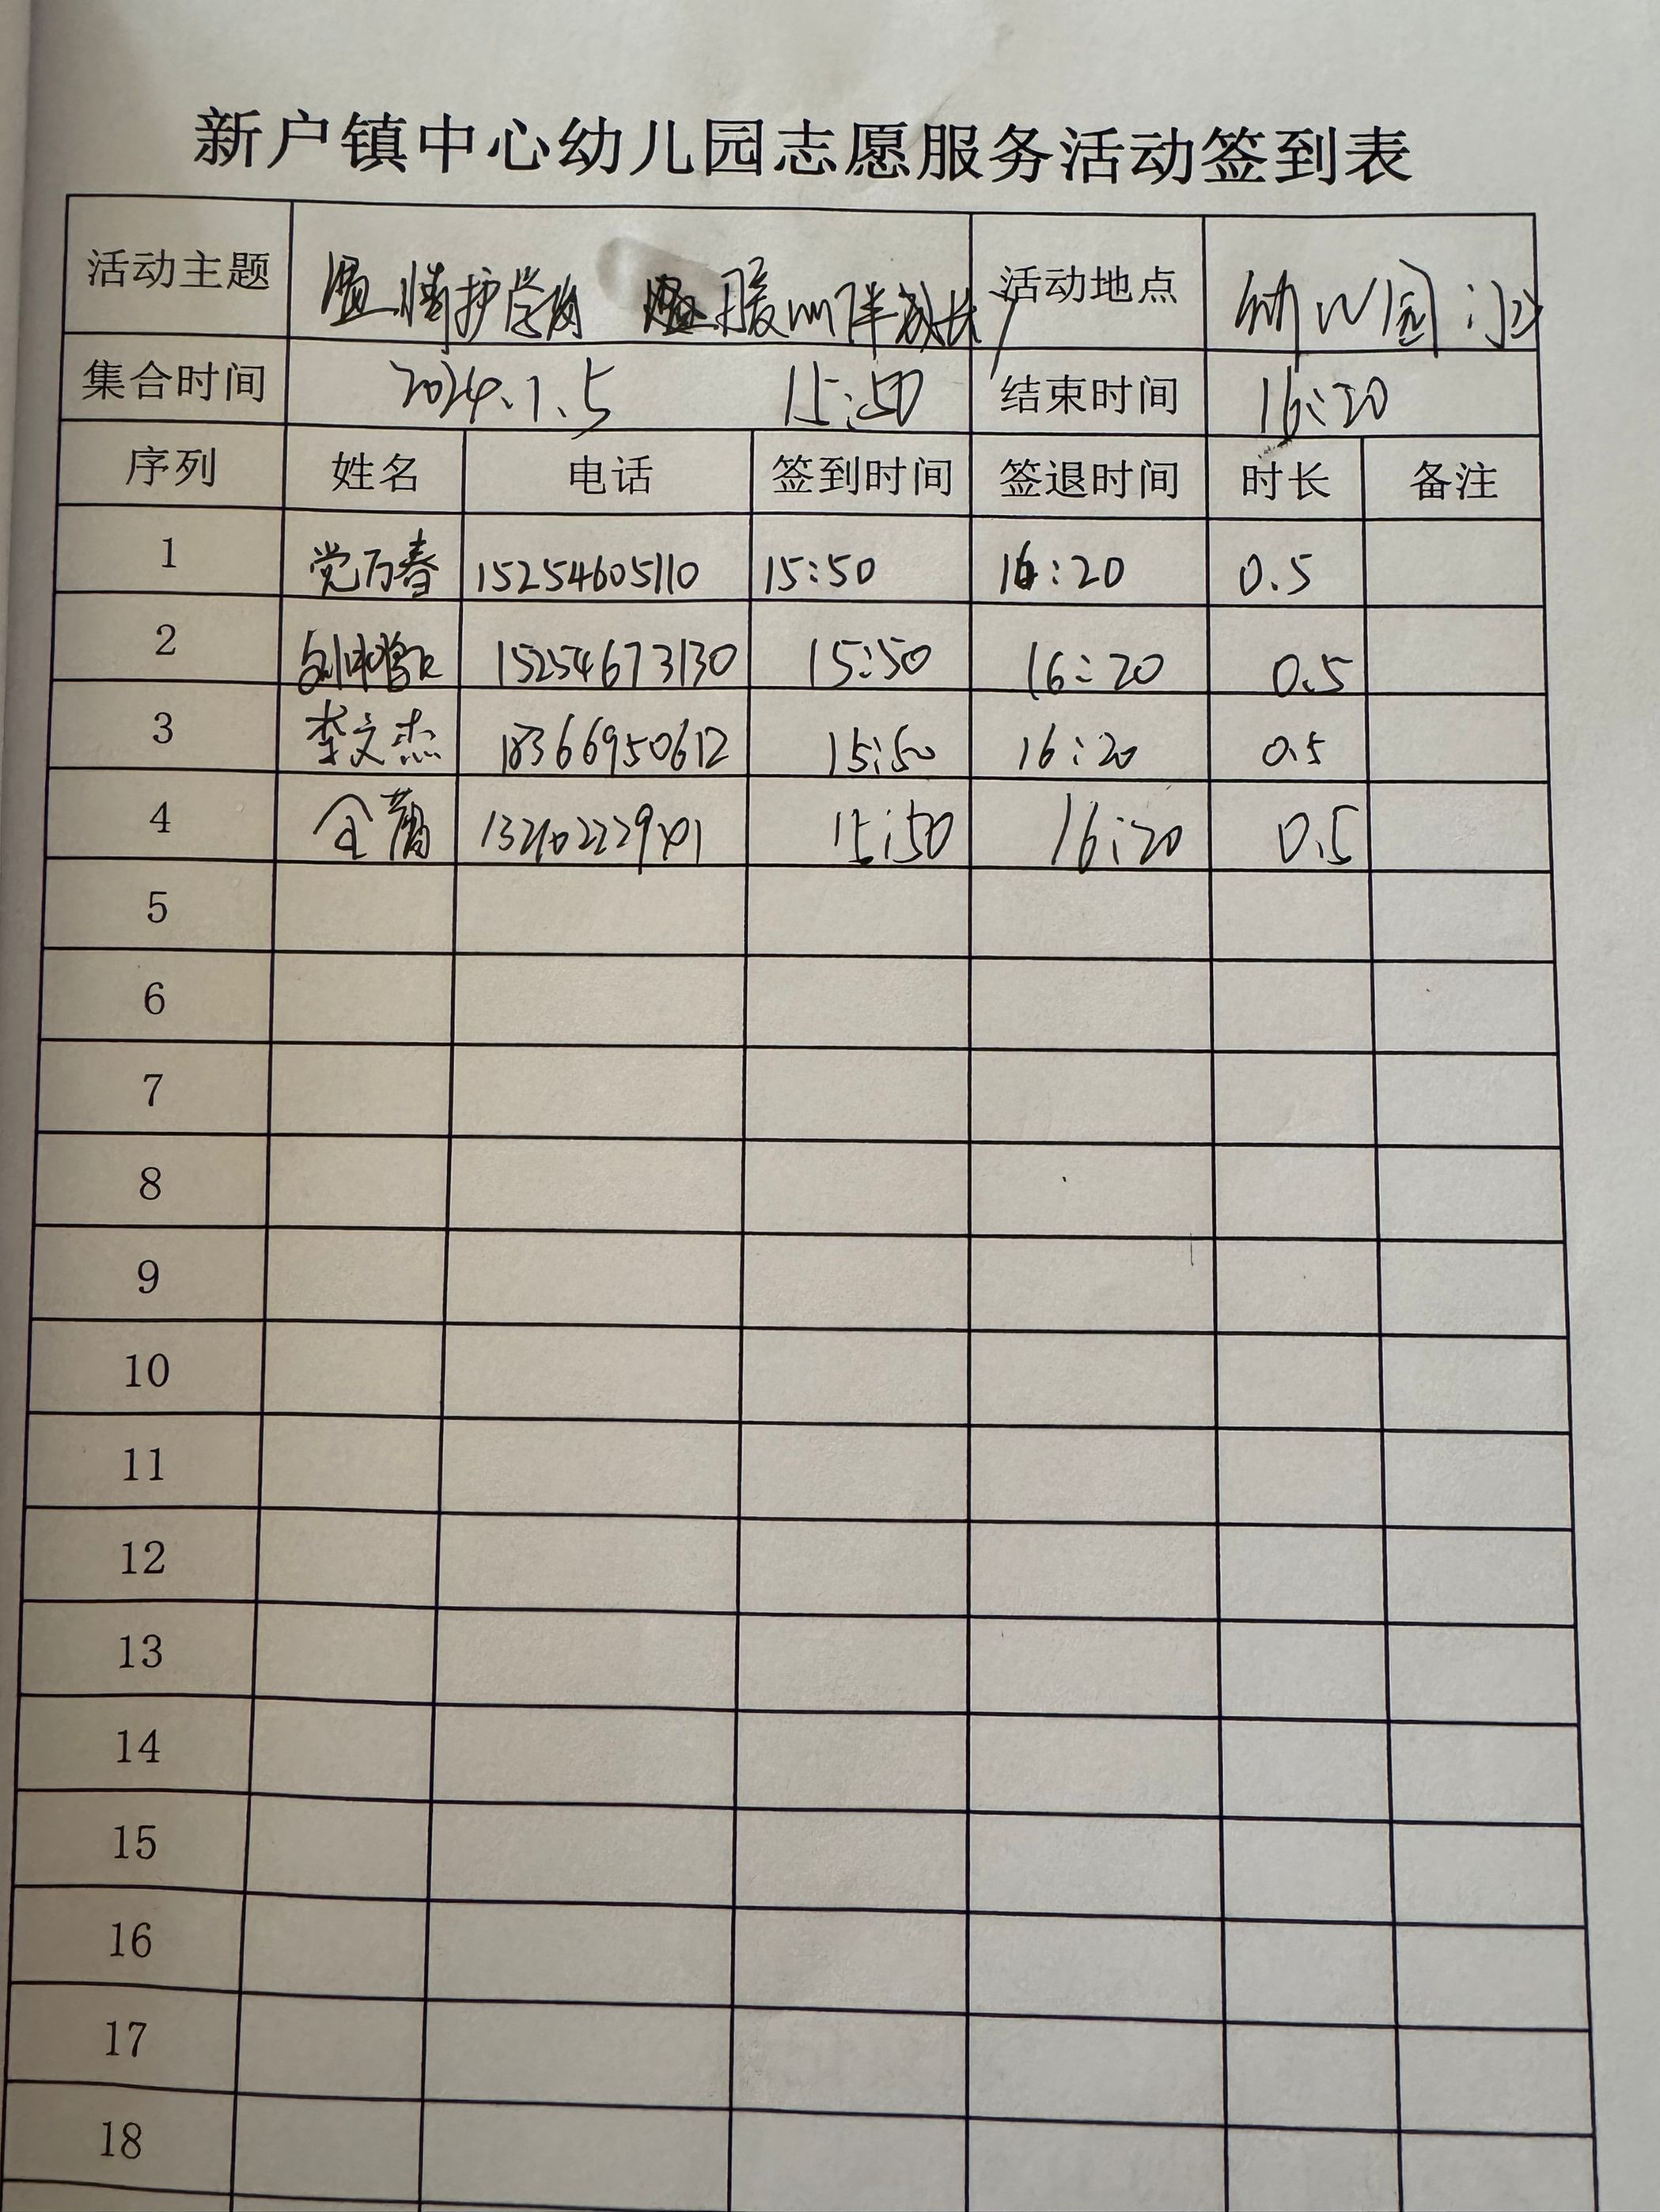 新户镇中心幼儿园志愿服务活动签到表
活动主题 温情护学岗 温暖伴成长 活动地点 幼儿园
集合时间 2024.1.5 15:50 结束时间 16:20
序列 姓名 电话 签到时间 签退时间 时长 备注
1 党万春 15254605110 15:50 16:20 0.5
2 15254673130 15:50 16:20 0.5
3 李文杰 18366950612 15:50 16:20 0.5
4 15:50 16:20 0.5
5
6
7
8
9
10
11
12
13
14
15
16
17
18